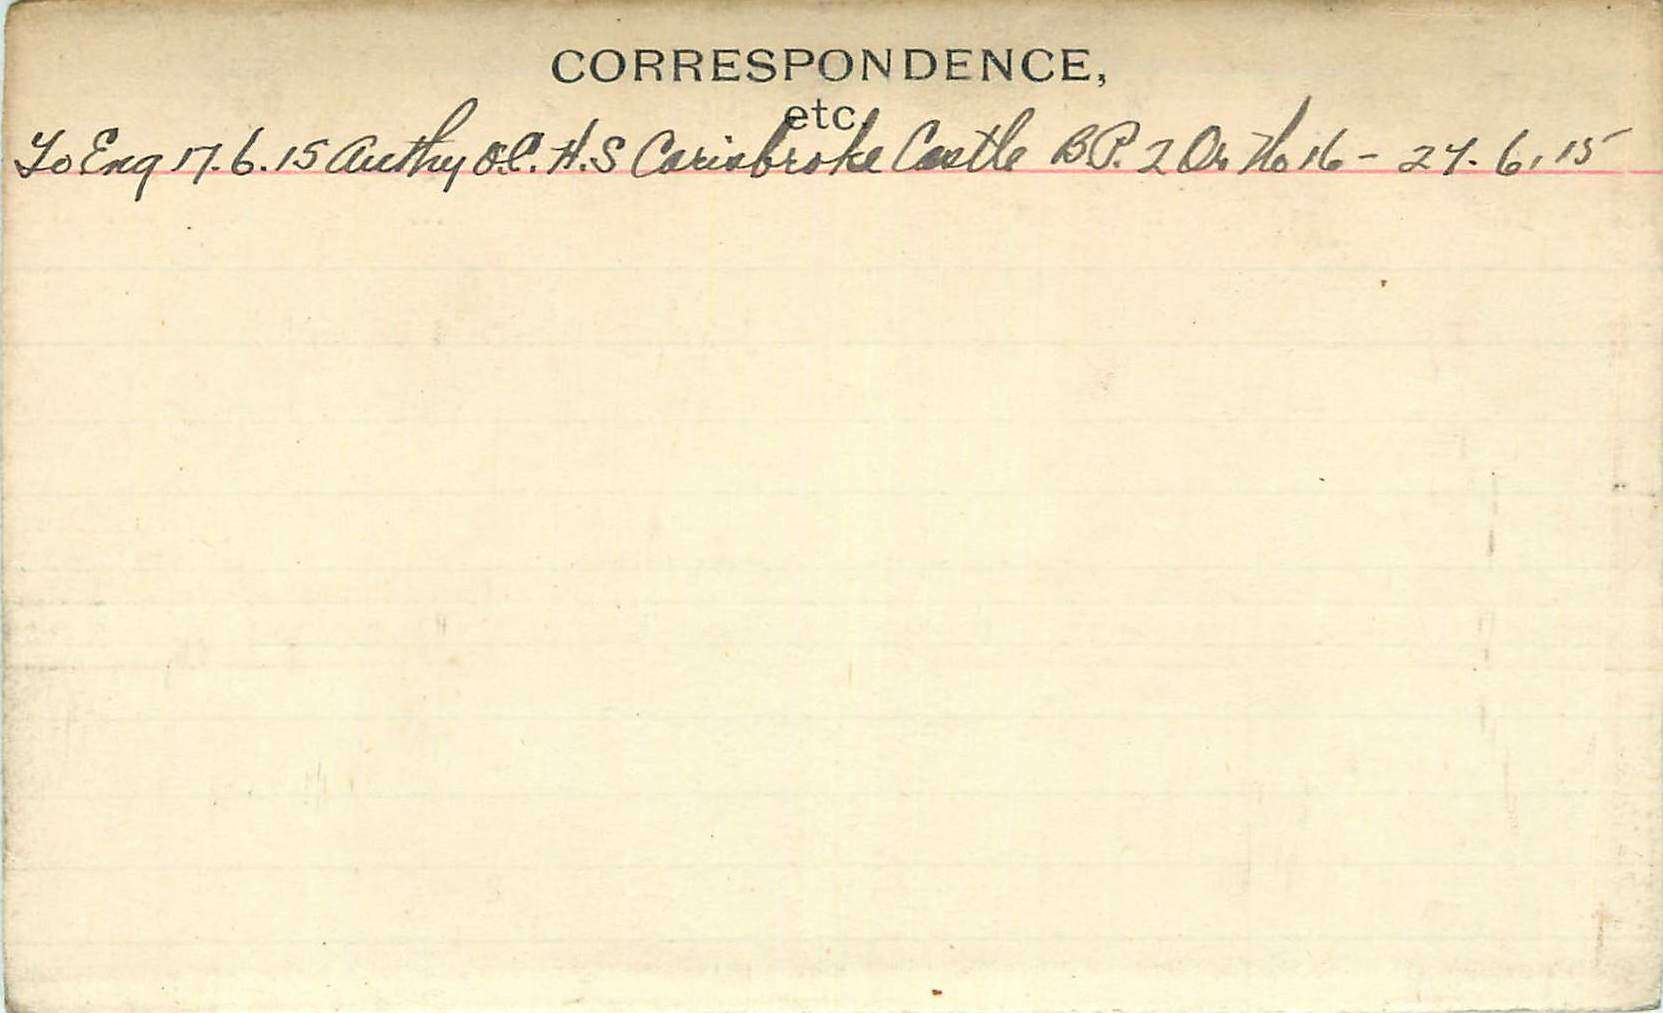 CORRESPONDENCE,
etc.
To Eng 17.6.15 Authy O.C. H.S Carisbroke Castle B.P. 2 Or No 16 - 27.6.15